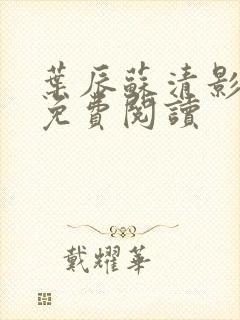 葉辰蘇清影
免費閱讀
戴耀華